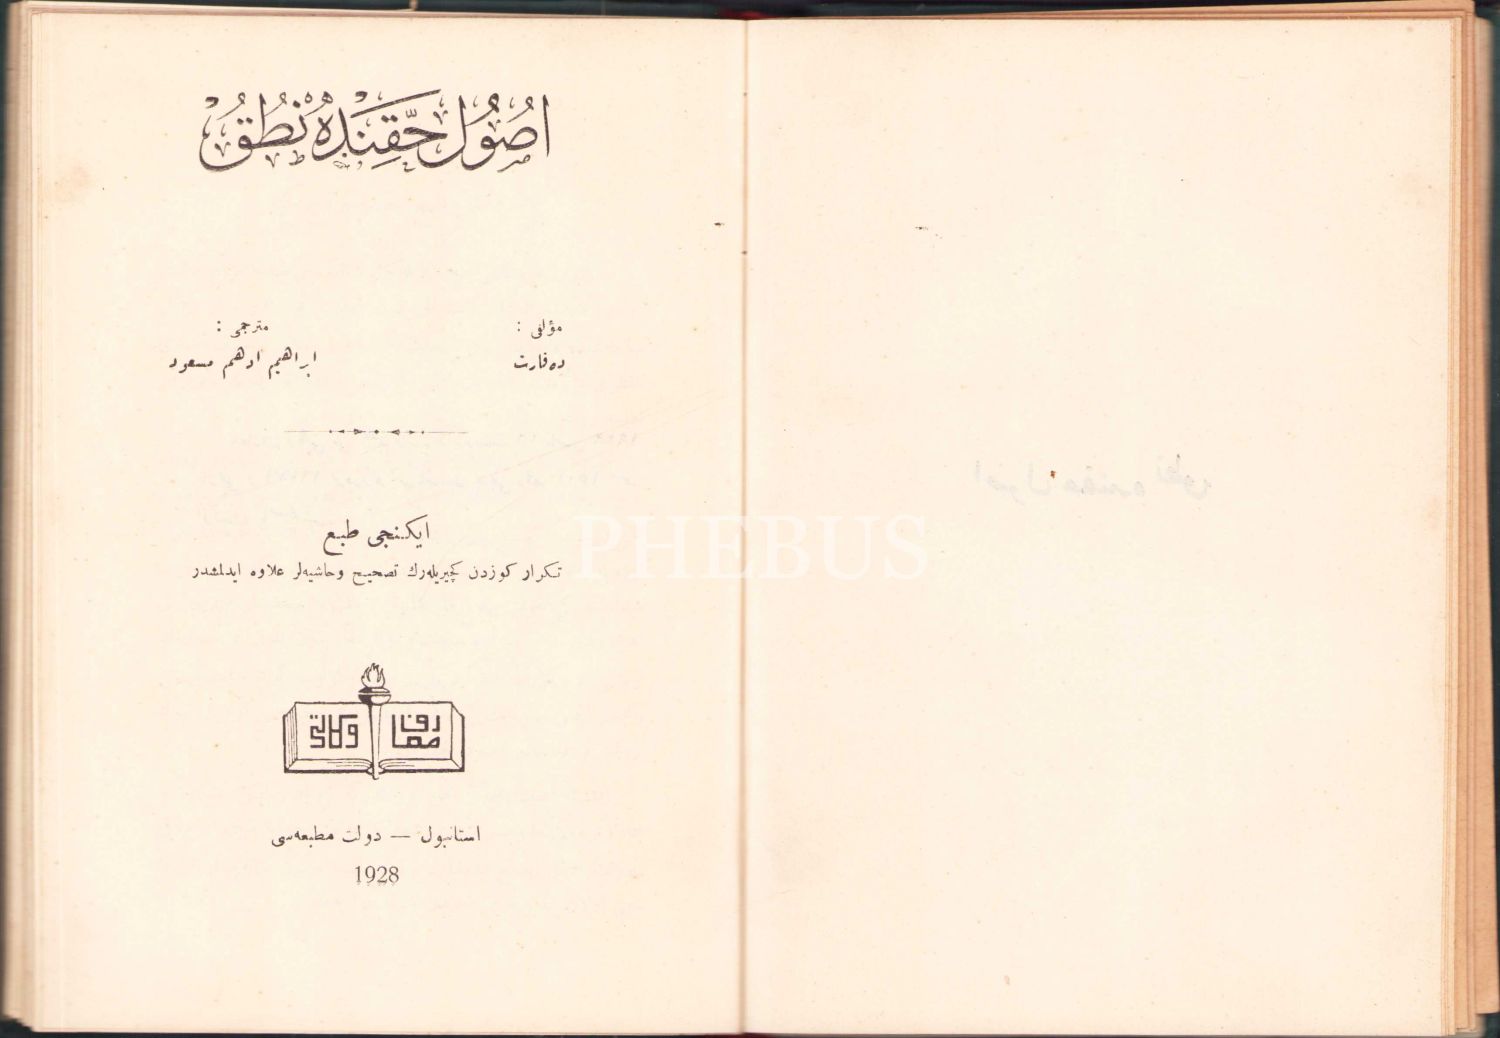 اصول حقنده نطق
مؤلفی :
ده قارت
مترجمی :
ابراهیم ادهم مسعود
ایکنجی طبع
تكرار كوزدن كچیریله‌رك تصحیح وحاشیه‌لر علاوه ایدلمشدر
معارف وكالتی
استانبول — دولت مطبعه‌سی
1928
PHEBUS